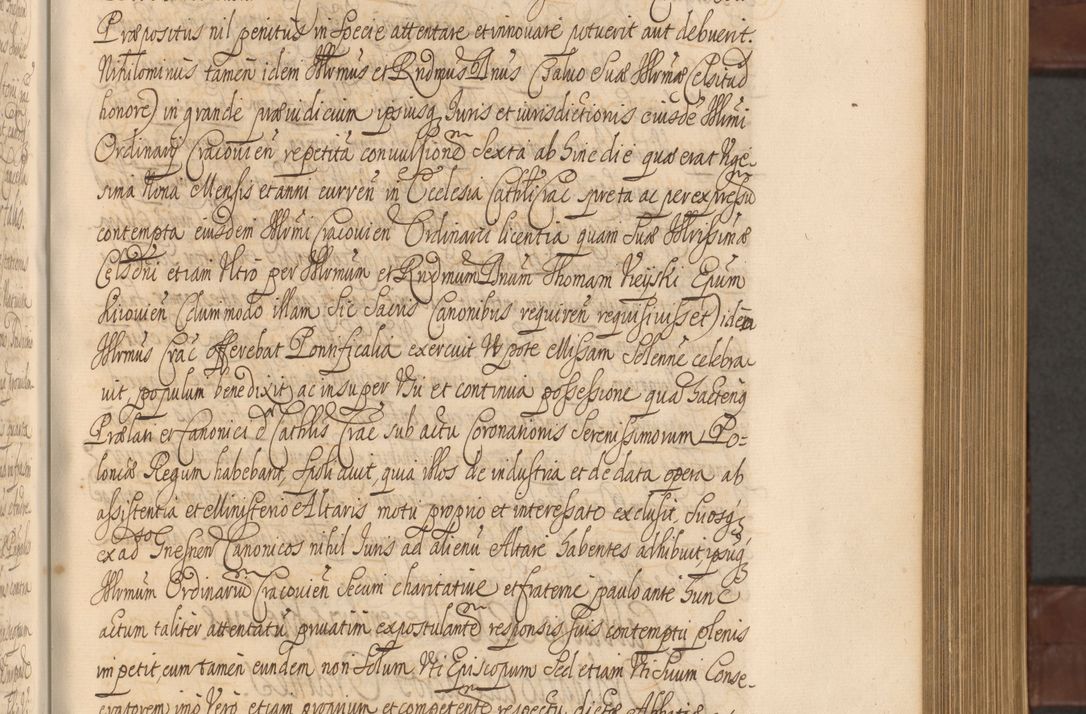 Præpositus nil penitus in specie attentare et innovare potuerit aut debuerit.
Nihilominus tamen idem Illrmus et Rndmus Dnus (Salvo Suæ Illrmæ Celsitud
honore) in grande præiudicium ipsiusq Iuris et iurisdictionis eiusdē Illrmi
Ordinarij Cracovien̄ repetitā convulsionē Sexta ab hinc die quæ erat Vige-
sima Nona Mensis et anni curren̄ in Ecclesia Cathli Crac spreta ac per expressū
contempta eiusdem Illrmi Cracovien Ordinarii licentia quam Suæ Illrissimæ
Celsdni etiam Ultro per Illrmum et Rndmum Dnum Thomam Epum
Kiiovien̄ (dummodo illam Sic Sacris Canonibus requiren̄ requisiuisset) idem
Illrmus Crac offerebat Pontificalia exercuit Utpote Missam Solennē celebra
vit, populum benedixit, ac insuper Usu et continua possessione quā hactenq
Prælati et Canonici d Cathlis Crac sub actu Coronationis Serenissimorum Po-
loniæ Regum habebant, spoliavit, quia illos de industria et de data opera ab
assistentia et Ministerio Altaris motu proprio et interessato exclusit, Suosq
ex ad Gnesnen Canonicos nihil Iuris ad alienū Altare habentes adhibuit, ipsūq
Illrmum Ordinariū Cracovien̄ Secum charitative et fraterne paulo ante hunc
actum taliter attentatū privatim expostulantē responsis suis contemptū plenis
impetit, cum tamen eundem non Solum Uti Episcopum Sed etiam Uti Suum Conse-
cratorem imo Vero etiam proprium et competentē respectu dictæ Abbatiæ